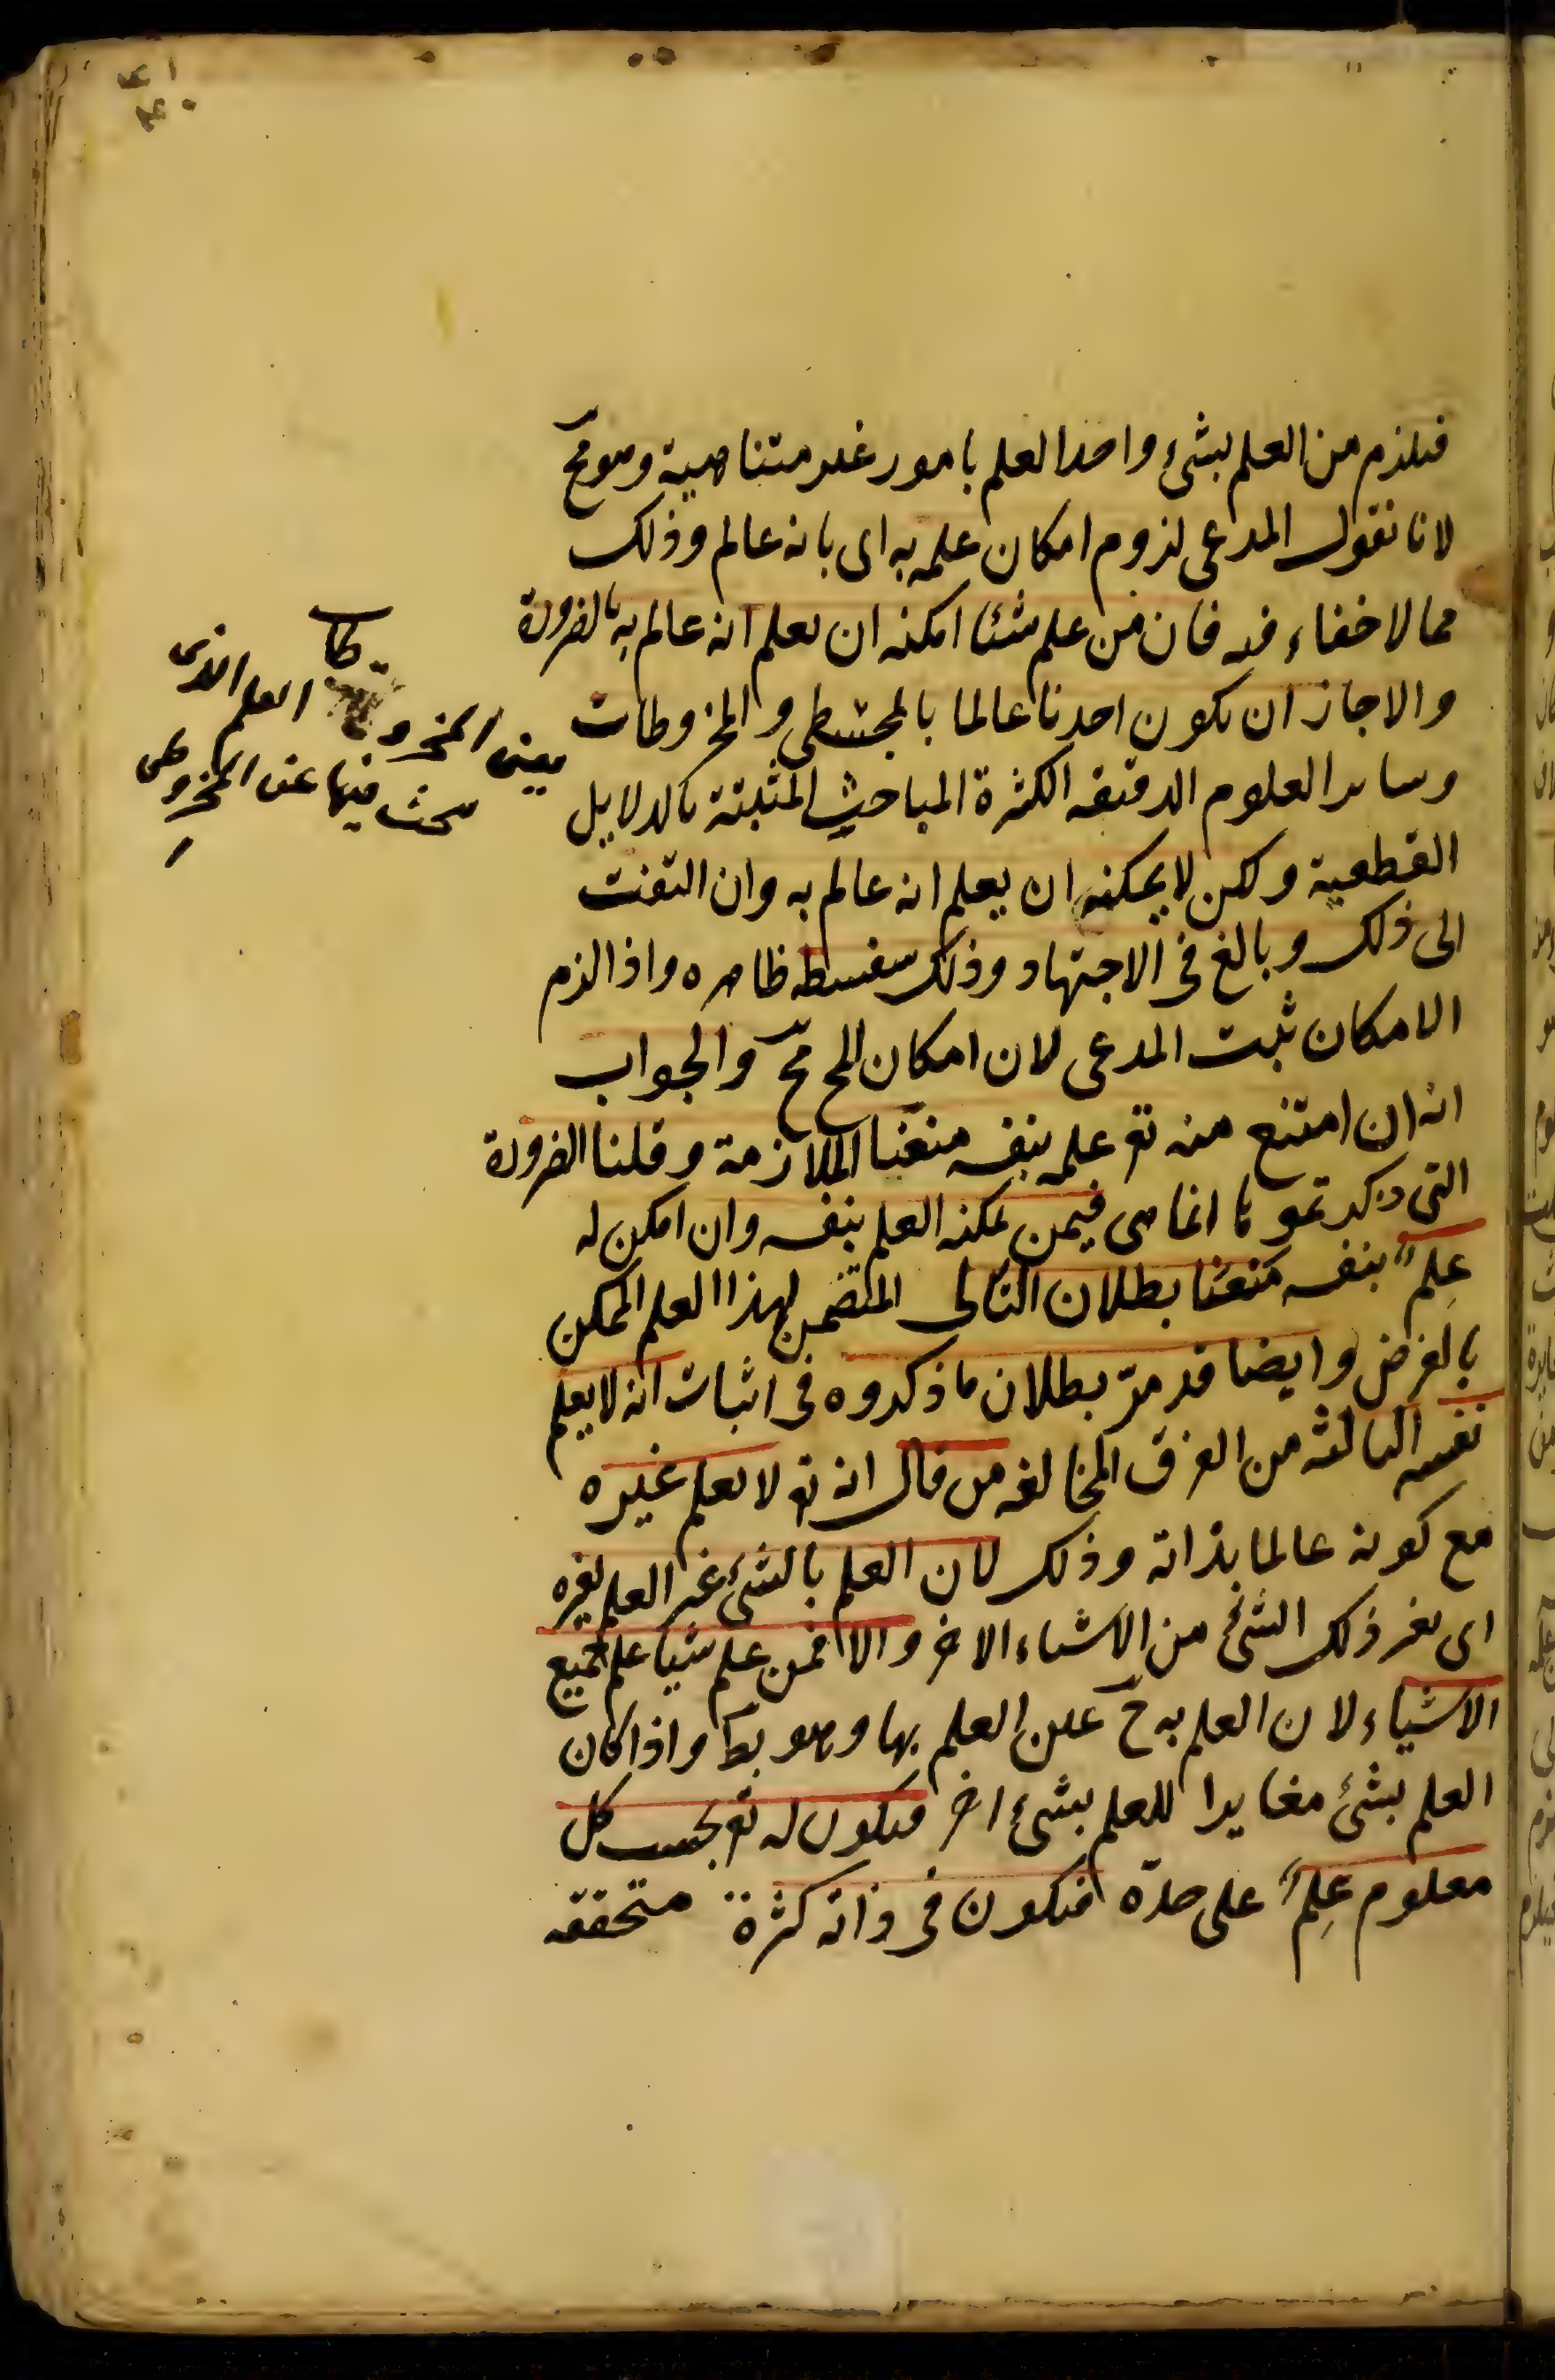 فيلزم من العلم بشئ واحد العلم بامور غير متناهية وهو مح
لانا نقول المدعى لزوم امكان علمه به اى بانه عالم وذلك
مما لا خفاء فيه فان من علم شيئا امكنه ان يعلم انه عالم به بالضرورة
والا جاز ان يكون احدنا عالما بالمجسطى والمخروطات
وساير العلوم الدقيقه الكثيرة المباحث المثبتة بالدلايل
القطعية ولكن لا يمكنه ان يعلم انه عالم به وان التفت
الى ذلك وبالغ فى الاجتهاد وذلك سفسطه ظاهره واذا لزم
الامكان ثبت المدعى لان امكان المح مح والجواب
انه ان امتنع منه تع علمه بنفسه منعنا الملازمة وقلنا الضرورة
التى ذكرتموها انما هى فيمن يمكنه العلم بنفسه وان امكن له
عِلمٌ بنفسه مَنعنا بطلان التالى المتضمن لهذا العلم الممكن
بالفرض وايضا قد مرّ بطلان ما ذكروه فى اثبات انه لا يعلم
نفسه الثالثه من الفرق المخالفه من قال انه تع لا يعلم غيره
مع كونه عالما بذاته وذلك لان العلم بالشئ غير العلم بغيره
اى بغير ذلك الشئ من الاشياء الاخر والا فمن علم شيأ علم جميع
الاشياء لان العلم به ح عين العلم بها وهو بط واذا كان
العلم بشئ مغايرا للعلم بشئ اخر فيكون له تع بحسب كل
معلوم عِلمٌ على حدّه فيكون فى ذاته كثرة متحققه
يعنى المخروطات العلم الذى
يبحث فيها عن المخروطى